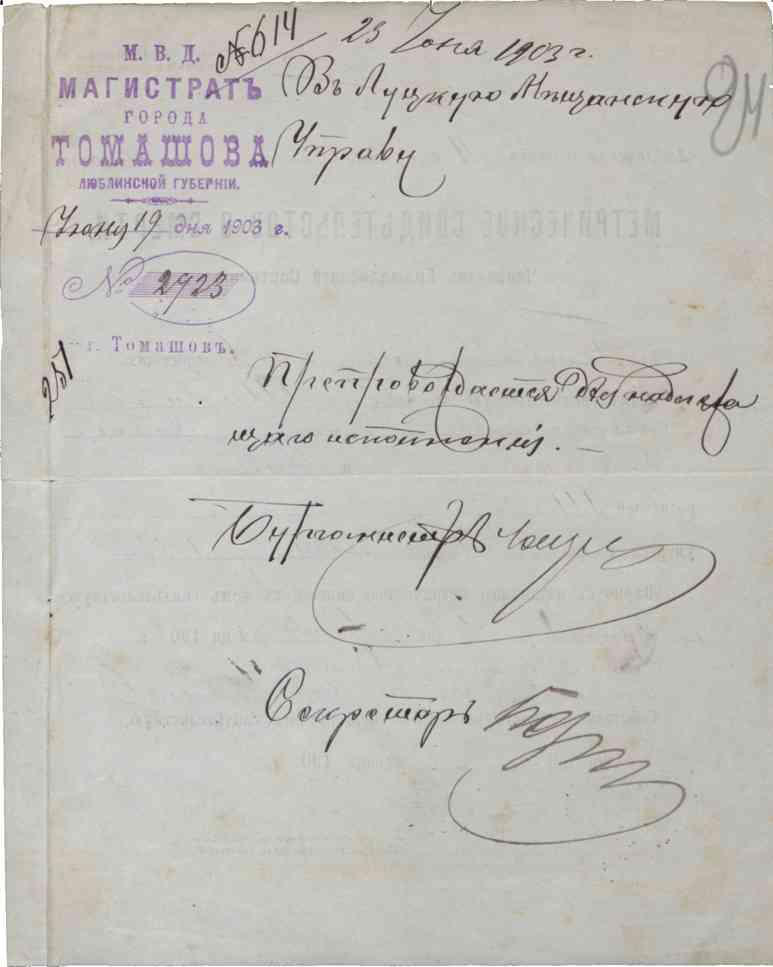 № 614
23 Іюня 1903 г.
24
М. В. Д.
МАГИСТРАТЪ
ГОРОДА
ТОМАШОВА
ЛЮБЛИНСКОЙ ГУБЕРНІИ.
Въ Луцкую Мѣщанскую
Управу
Іюня 19 дня 1903 г.
№ 2923
г. Томашовъ.
251
Препровождается для надлежа
щаго исполненія.
Бургомистръ
Секретарь